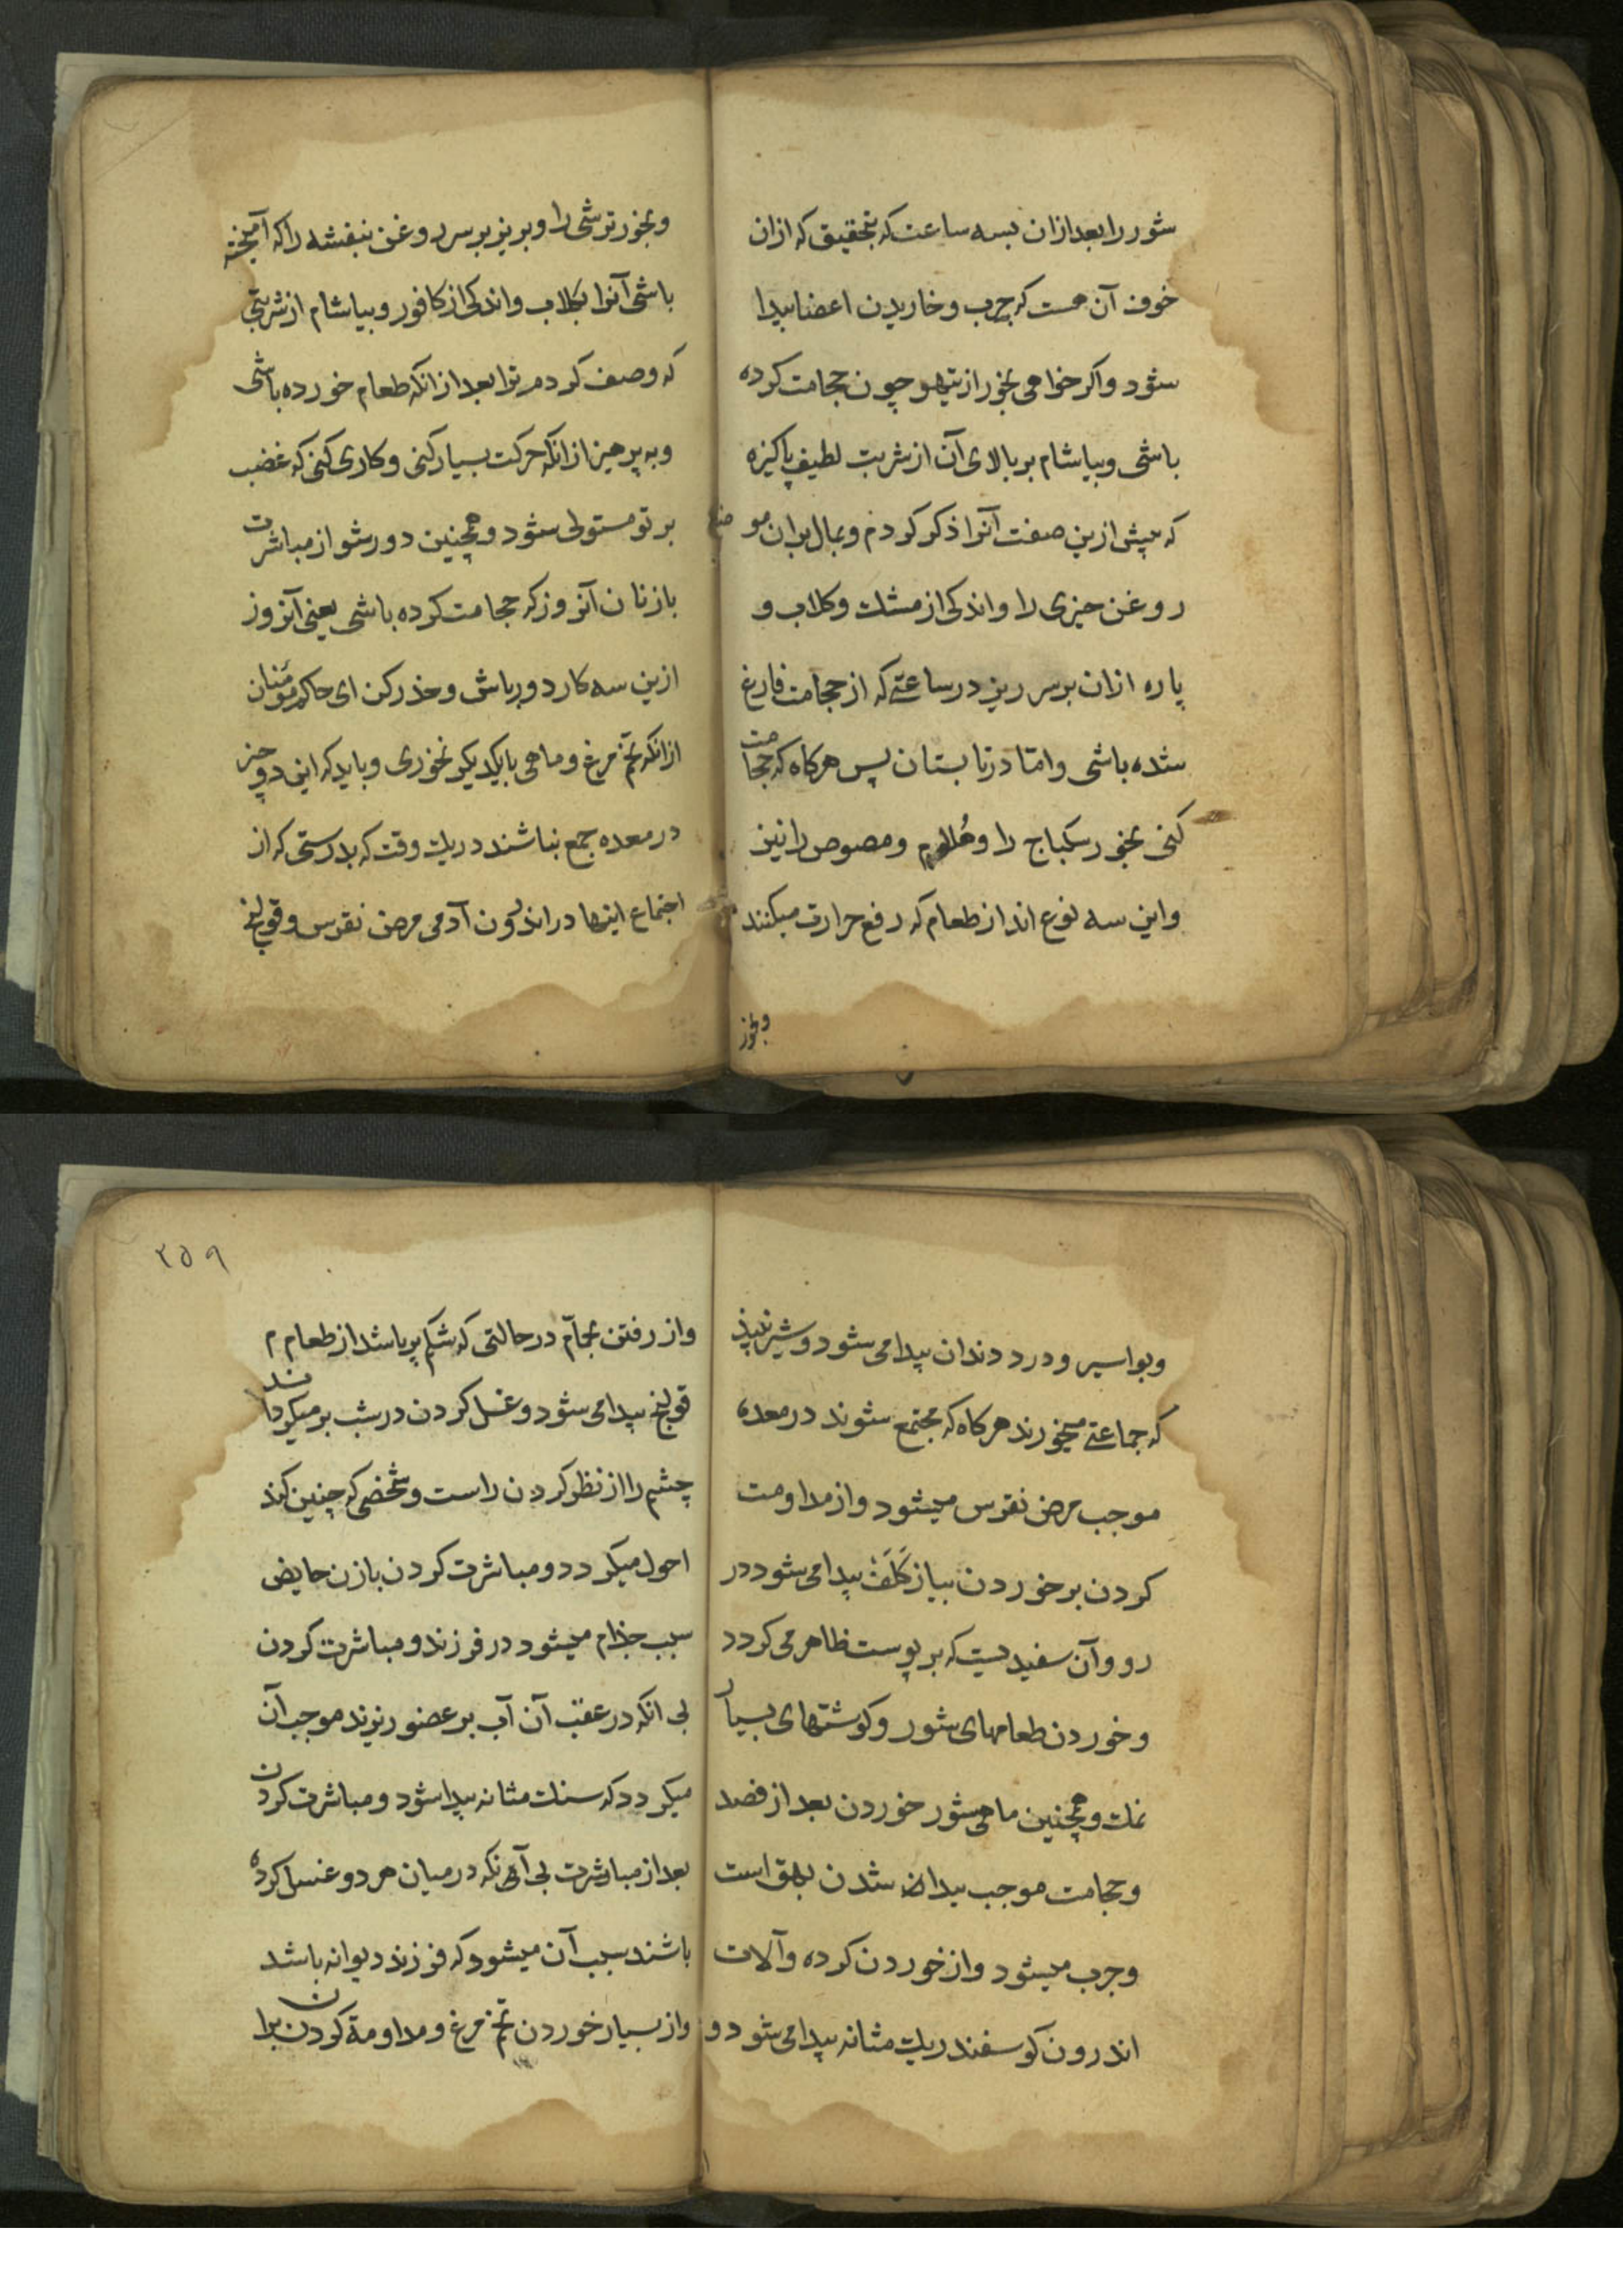 شور را بعد ازان بسه ساعت که بتحقیق که ازان
خوف آن هست که جرب و خاریدن اعضا پیدا
شود و اکر خواهی بخور از تیهو چون حجامت کرده
باشی و بیاشام بر بالای آن از شربت لطیف پاکیزه
که پیش ازین صفت آنرا ذکر کردم و بمال بران موضع
روغن خیری را و اندکی از مشک و کلاب و
پاره ازان بر سر ریز در ساعتی که از حجامت فارغ
شده باشی و امّا در تابستان پس هرکاه که حجامت
کنی بخور سکباج را و هُلام و مصوص را نیز
و این سه نوع اند از طعام که رفع حرارت میکنند
وبخور
وبخور ترشی را و بریز بر سر روغن بنفشه را که آمیخته
باشی آنرا بکلاب و اندکی از کافور و بیاشام از شربتی
که وصف کردم ترا بعد ازانکه طعام خورده باشی
و به پرهیز ازانکه حرکت بسیار کنی و کاری کنی که غضب
بر تو مستولی شود و همچنین دور شو از مباشرت
با زنان آنروز که حجامت کرده باشی یعنی آنروز
ازین سه کار دور باش و حذر کن ای حاکم مؤمنان
ازانکه تخم مرغ و ماهی با یکدیکر نخوری و باید که این دو چیز
در معده جمع نباشند در یک وقت که بدرستی که از
اجتماع اینها در اندرون آدمی مرض نقرس و قولنج
وبواسیر و درد دندان پیدا می شود و شیر نبیذ
که جماعتی میخورند هرکاه که مجتمع شوند در معده
موجب مرض نقرس میشود و از مداومت
کردن بر خوردن پیاز کَلَفْ پیدا می شود در
رو و آن سفیدیست که بر پوست ظاهر می کردد
و خوردن طعامهای شور و کوشتهای بسیار
نمک و همچنین ماهی شور خوردن بعد از فصد
و حجامت موجب پیدا شدن بهق است
و جرب میشود و از خوردن کرده و آلات
اندرون کوسفند ریک مثانه پیدا می شود و
٢٥٩
و از رفتن بحمام در حالتی که شکم پر باشد از طعام
قولنج پیدا می شود و غسل کردن در شب برمیکرداند
چشم را از نظر کردن راست و شخصی که چنین کند
احول میکردد و مباشرت کردن با زن حایض
سبب جذام میشود در فرزند و مباشرت کردن
بی انکه در عقب آن آب بر عضو ریزند موجب آن
میکردد که سنک مثانه پیدا شود و مباشرت کردن
بعد از مباشرت بی آنکه در میان هر دو غسل کرده
باشند سبب آن میشود که فرزند دیوانه باشد
و از بسیار خوردن تخم مرغ و مداومة کردن بران